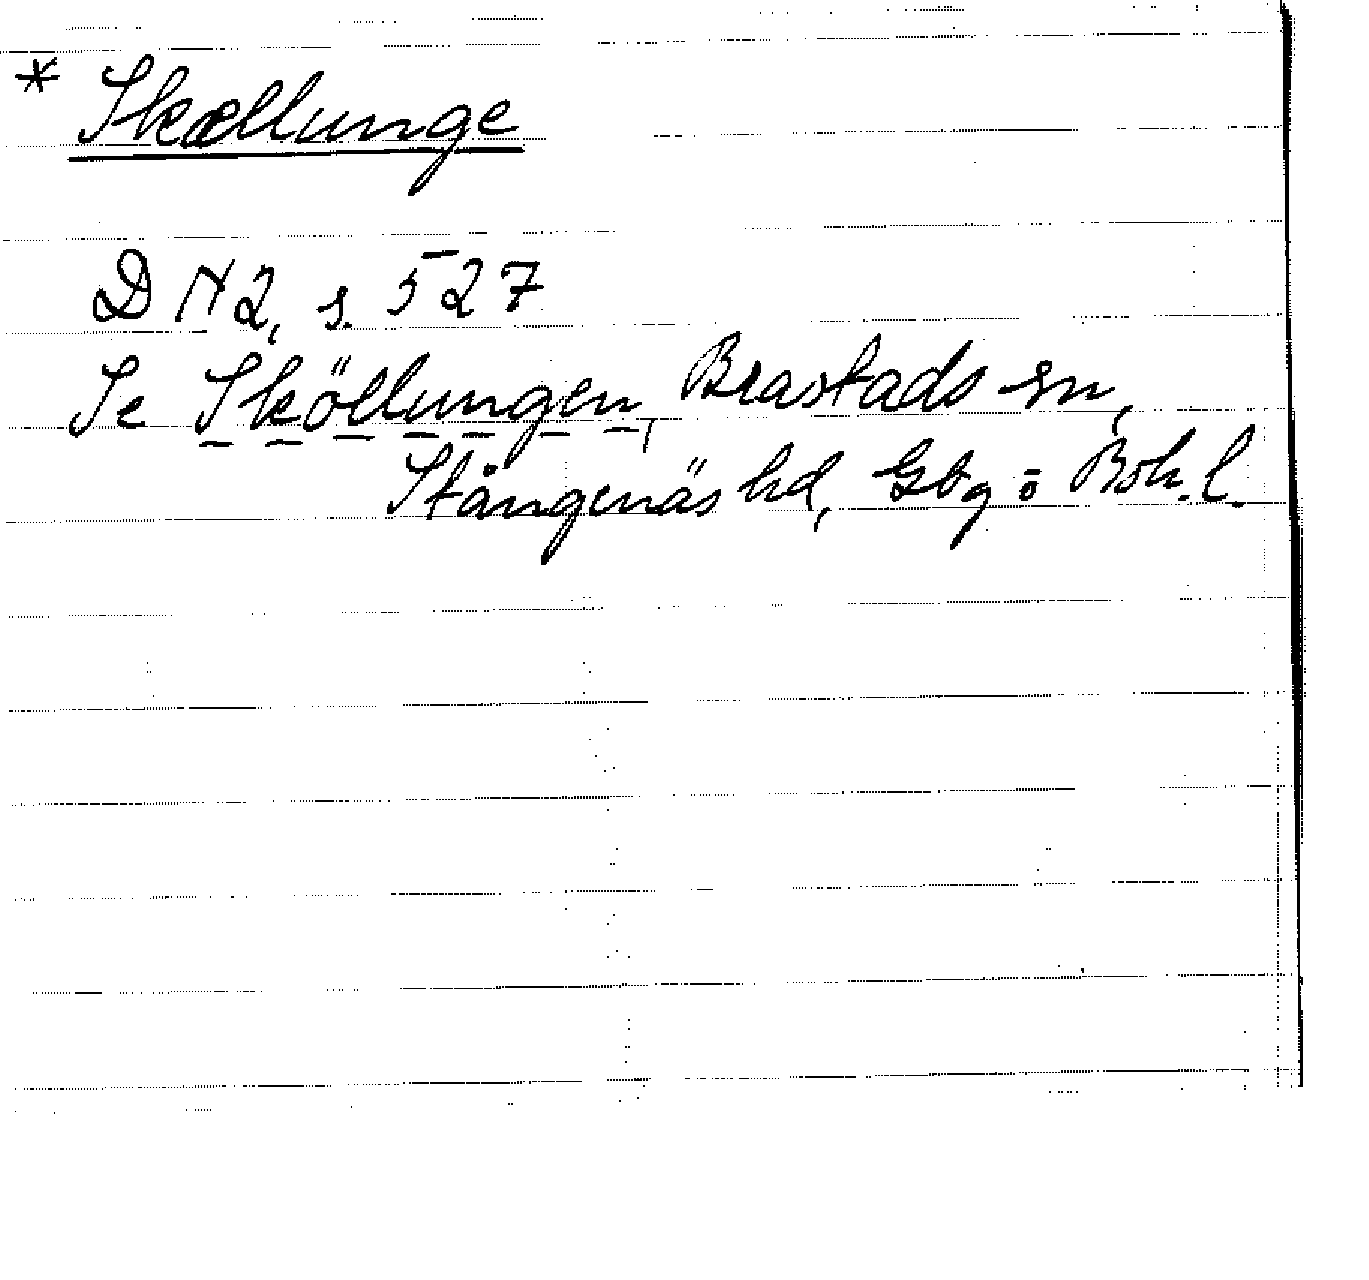 * Skællunge
DN2, s. 527
Se Sköllungen, Brastads sn,
Stångenäs hd, Gbg o Boh. l.